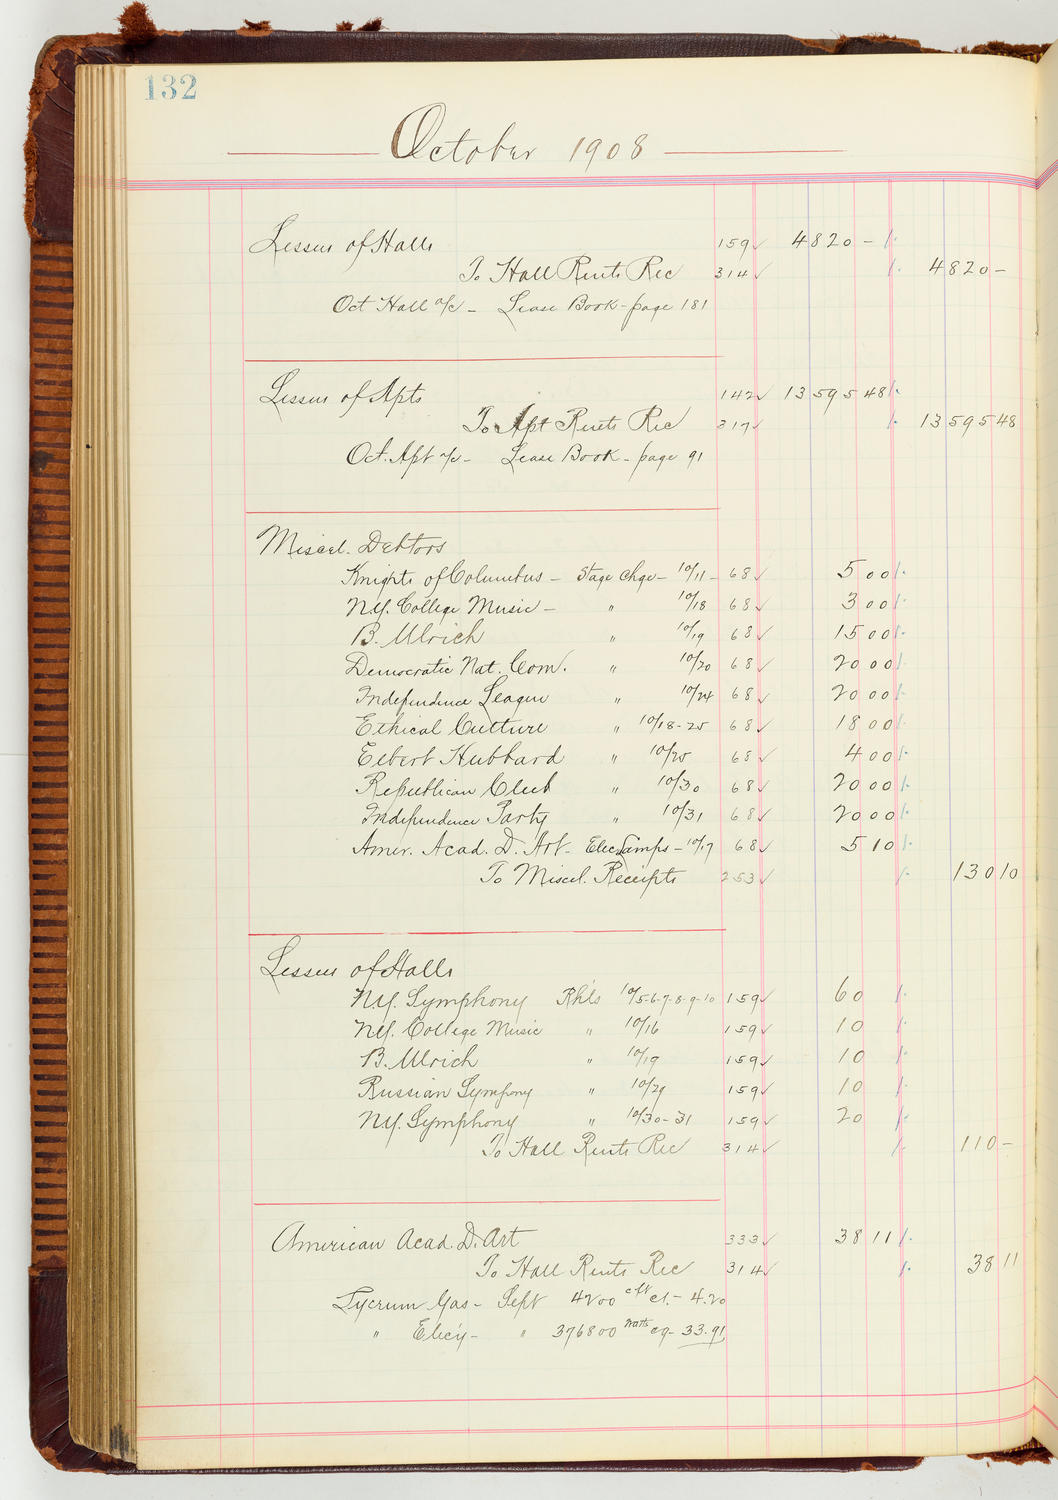 132
October 1908
Lessees of Halls 159 ✓ 4820 -
To Hall Rents Rec 314 ✓ 4820 -
Oct Hall a/c - Lease Book - page 181
Lessees of Apts 142 ✓ 13 595 48
To Apt Rents Rec 317 ✓ 13 595 48
Oct. Apt a/c - Lease Book - page 91
Miscel. Debtors
Knights of Columbus - Stage Chge - 10/11 - 68 ✓ 5 00
N.Y. College Music - " 10/18 68 ✓ 3 00
B. Ulrich " 10/19 68 ✓ 15 00
Democratic Nat. Com. " 10/20 68 ✓ 20 00
Independence League " 10/24 68 ✓ 20 00
Ethical Culture " 10/18-25 68 ✓ 18 00
Elbert Hubbard " 10/25 68 ✓ 4 00
Republican Club " 10/30 68 ✓ 20 00
Independence Party " 10/31 68 ✓ 20 00
Amer. Acad. D. Art - Elec Lamps - 10/17 68 ✓ 5 10
To Miscel. Receipts 253 ✓ 130 10
Lessees of Halls
N.Y. Symphony Rhls 10/5-6-7-8-9-10 159 ✓ 60
N.Y. College Music " 10/16 159 ✓ 10
B. Ulrich " 10/19 159 ✓ 10
Russian Sympony " 10/29 159 ✓ 10
N.Y. Symphony " 10/30-31 159 ✓ 20
To Hall Rents Rec 314 ✓ 110 -
American Acad. D. Art 333 ✓ 38 11
To Hall Rents Rec 314 ✓ 38 11
Lyceum Gas - Sept 4200 cft ct. - 4.20
" Elec'y - " 376800 Watts - 33.91